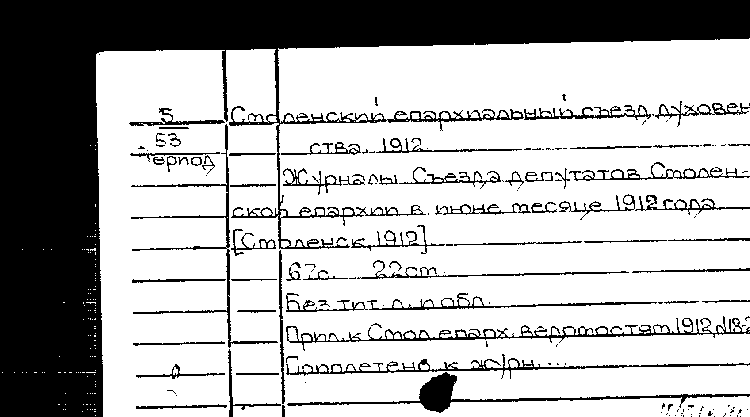 5
53
период
Смоленский епархиальный съезд духовен-
ства. 1912
Журналы Съезда депутатов Смолен-
ской епархии в июне месяце 1912 года
[Смоленск, 1912]
67с. 22см.
Без тит. л. и обл.
Прил. к Смол. епарх. ведомостям 1912, №18-2
Приплетено к журн. ...